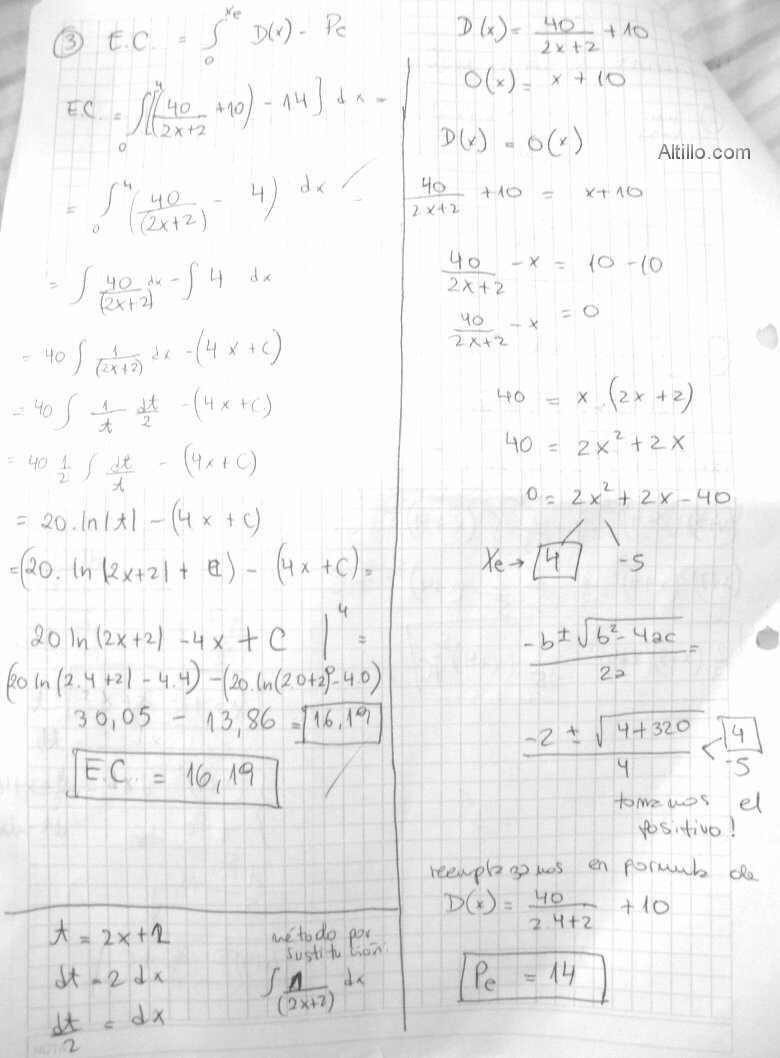 ③ E.C. = ∫₀^xe D(x) - Pe
E.C. = ∫₀^4 [(40/(2x+2) + 10) - 14] dx =
= ∫₀^4 (40/(2x+2) - 4) dx
= ∫ 40/(2x+2) dx - ∫ 4 dx
= 40 ∫ 1/(2x+2) dx - (4x + C)
= 40 ∫ 1/t dt/2 - (4x + C)
= 40 1/2 ∫ dt/t - (4x + C)
= 20. ln|t| - (4x + C)
= (20. ln|2x+2| + C) - (4x + C) =
20 ln(2x+2) - 4x + C |₀^4 =
(20 ln(2.4+2) - 4.4) - (20. ln(2.0+2) - 4.0)
30,05 - 13,86 = 16,19
E.C. = 16,19
t = 2x+2
dt = 2 dx
dt/2 = dx
método por
sustitución
∫ 1/(2x+2) dx
D(x) = 40/(2x+2) + 10
O(x) = x + 10
D(x) = O(x)
Altillo.com
40/(2x+2) + 10 = x + 10
40/(2x+2) - x = 10 - 10
40/(2x+2) - x = 0
40 = x . (2x+2)
40 = 2x² + 2x
0 = 2x² + 2x - 40
Xe → 4 -5
(-b ± √(b² - 4ac))/2a =
(-2 ± √(4 + 320))/4 < 4
-5
tomamos el
positivo!
reemplazamos en formula de
D(x) = 40/(2.4+2) + 10
Pe = 14